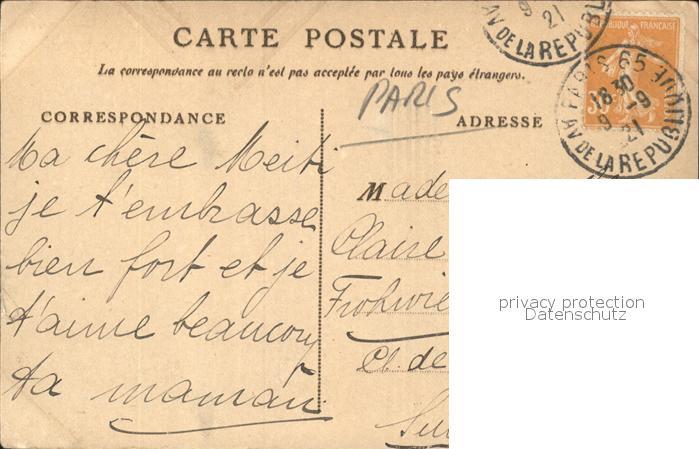 CARTE POSTALE
La correspondance au recto n'est pas acceptée par tous les pays étrangers.
PARIS
CORRESPONDANCE
ADRESSE
Ma chère
je t'embrasse
bien fort et je
t'aime beaucoup
ta maman
Made
Claire
Ch. de
REPUBLIQUE FRANÇAISE
PARIS 65
18 30
9 - 9
21
AV DE LA REPUBLIQUE
21
AV DE LA REPUBL
privacy protection
Datenschutz